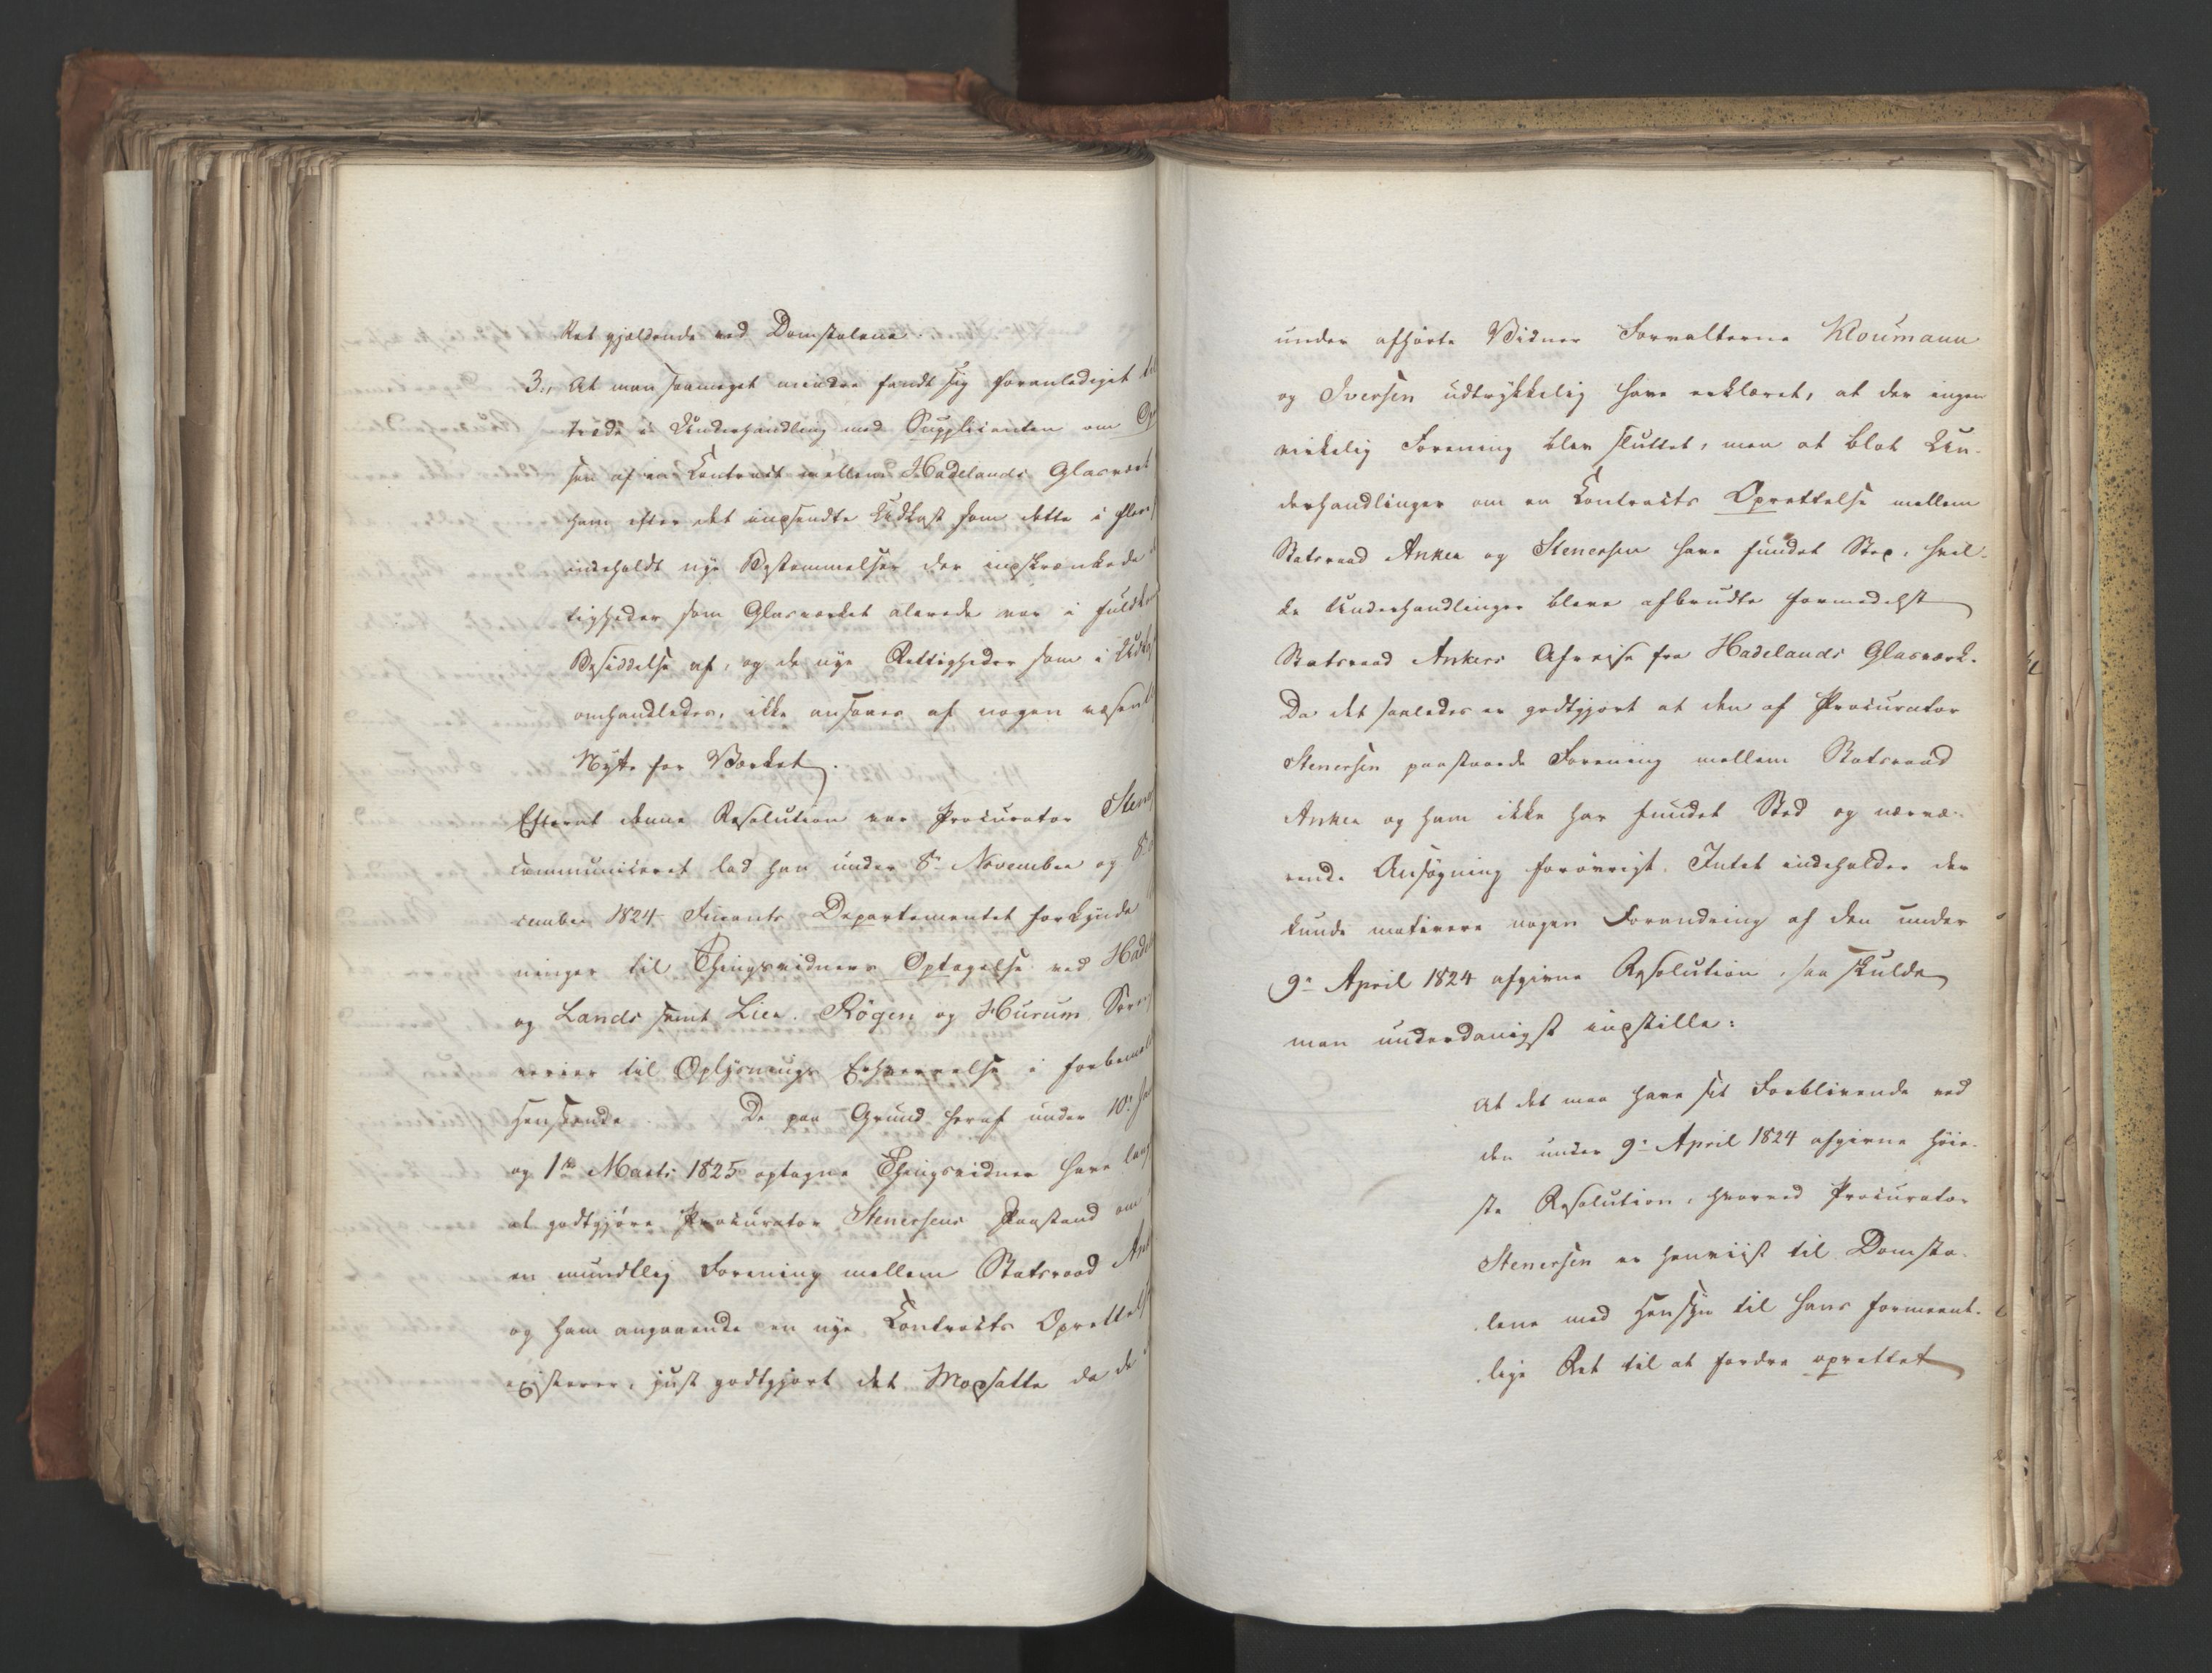 Ret gjældende ved Domstolene.
3., At man saameget mindre fandt sig foranlediget til
træde i Underhandling med Supplicanten om Op
sen af en Contract mellem Hadelands Glasværk
ham efter det indsendte Udkast som dette i flere
indeholdt nye Bestemmelser der indskrænkede
tigheder som Glasværket alerede var i fuldkom
Besiddelse af, og de nye Rettigheder som i Udkas
omhandledes, ikke ansaaes af nogen væsentl
Nytte for Værket.
Efterat denne Resolution var Procurator Steners
communiceret lod han under 8de November og 8de
cember 1824 Finants-Departementet forkynde
ninger til Thingsvidners Optagelse ved Hadel
og Lands samt Lier, Røgen og Hurum Soren
verier til Oplysnings Erhvervelse i forbemel
Henseende. De paa Grund heraf under 10de
og 1ste Marts 1825 optagne Thingsvidner have lang
at godtgjøre Procurator Stenersens Paastand om
en mundtlig Forening mellem Statsraad Ank
og ham angaaende en nye Contracts Oprettels
existerer, just godtgjort det Modsatte da de
under afhørte Vidner Forvalterne Kloumann
og Iversen udtrykkelig have erklæret, at der ingen
virkelig Forening blev sluttet, men at blot Un-
derhandlinger om en Contracts Oprettelse mellem
Statsraad Anker og Stenersen have fundet Sted, hvil-
ke Underhandlinger bleve afbrudte formedelst
Statsraad Ankers Afreise fra Hadelands Glasværk.
Da det saaledes er godtgjort at den af Procurator
Stenersen paastaaede Forening mellem Statsraad
Anker og ham ikke har fundet Sted og nærvæ-
rende Ansøgning forøvrigt Intet indeholder der
kunde motivere nogen Forandring af den under
9de April 1824 afgivne Resolution, saa skulde
man underdanigst indstille:
At det maa have sit Forblivende ved
den under 9de April 1824 afgivne høie-
ste Resolution, hvorved Procurator
Stenersen er henviist til Domsto-
lene med Hensyn til hans formeent-
lige Ret til at fordre oprettet